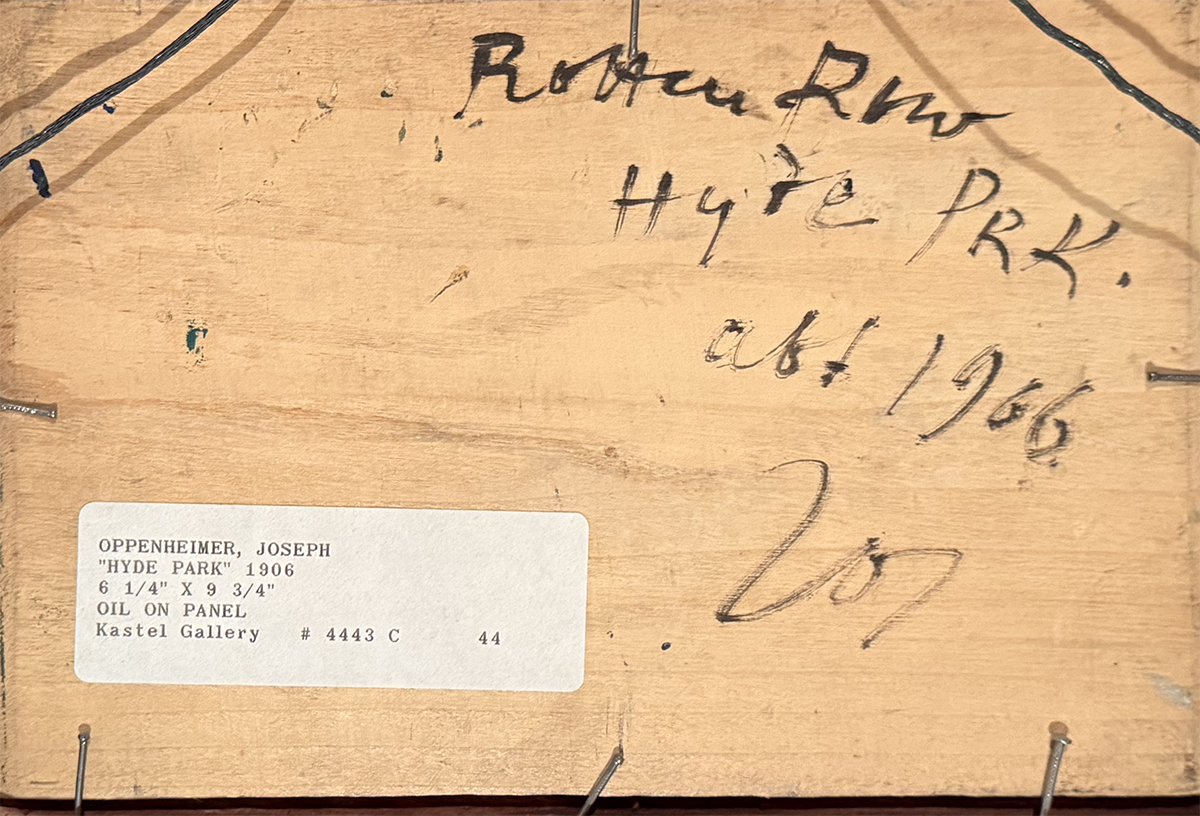 Rotten Row
Hyde PRK.
abt 1906
207
OPPENHEIMER, JOSEPH
"HYDE PARK" 1906
6 1/4" X 9 3/4"
OIL ON PANEL
Kastel Gallery # 4443 C 44